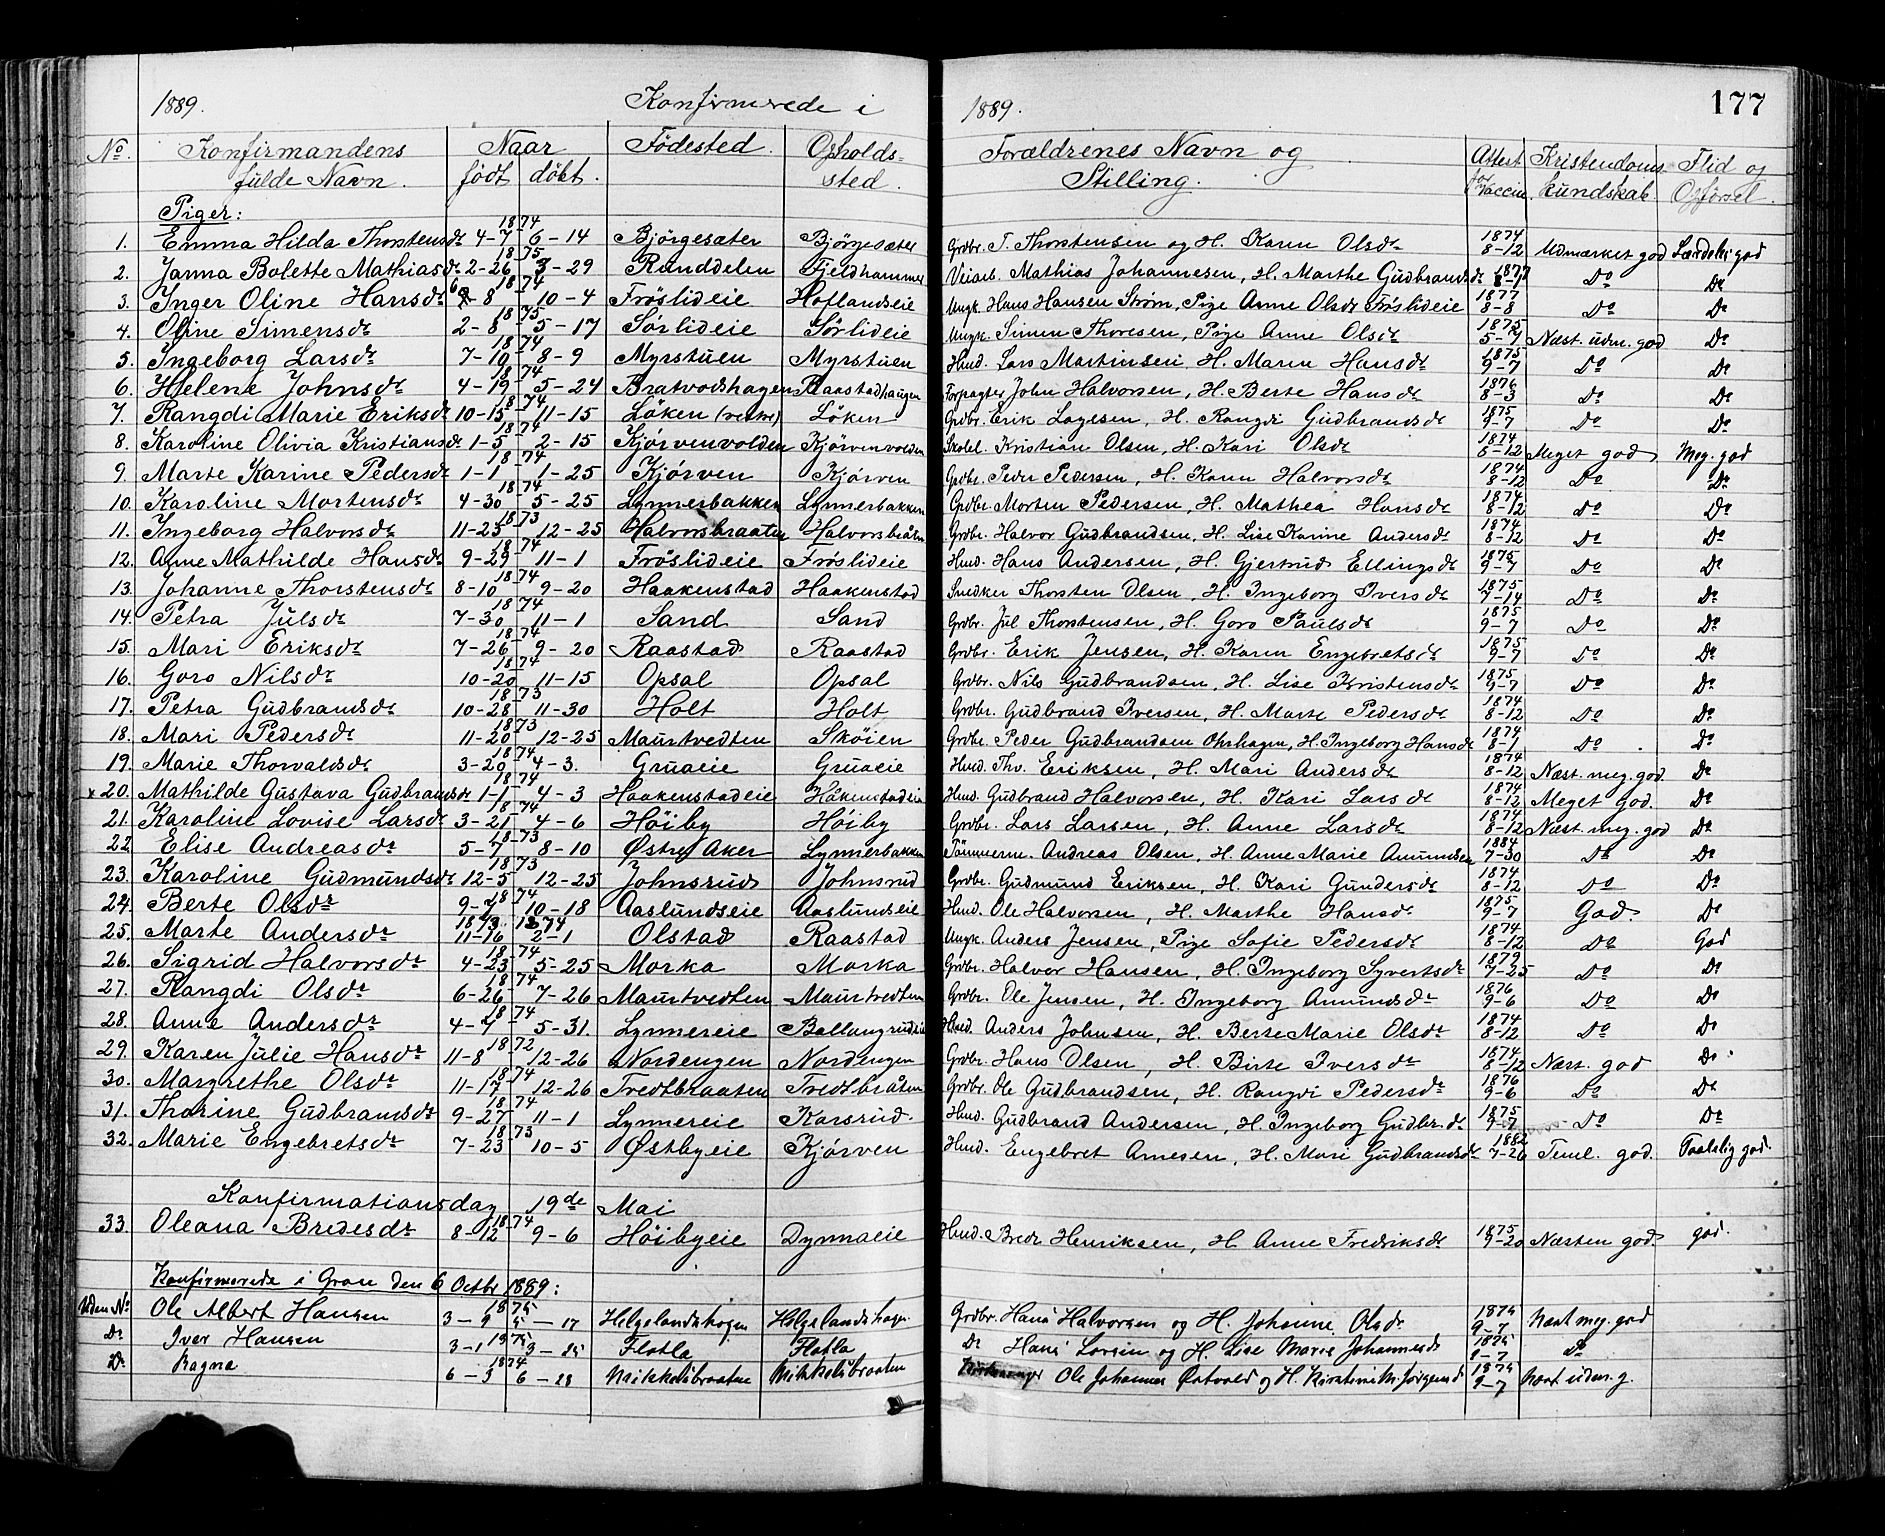 1889. Konfirmerede i 1889. 177
No. Konfirmandens fulde Navn. Naar født døbt. Födested. Opholds-sted. Forældrenes Navn og Stilling. Attest for Vaccin. Kristendoms kundskab. Flid og Opførsel.
Piger:
1. Emma Hilda Thorstensdr 1874 4-7 6-14 Bjørgesæter Bjørgesæter Grdbr. T. Thorstensen og H. Karen Olsdr 1874 8-12 Udmærket god Særdeles god
2. Janna Bolette Mathiasdr 1875 2-26 3-29 Randdelen Fjeldhammer Veiarb. Mathias Johannesen, H. Marthe Gudbrandsdr 1877 Do Do
3. Inger Oline Hansdr 1874 8 10-4 Frøslideie Hoflandseie Ungk. Hans Hansen Strøm, Pige Anne Olsdr Frøslideie 1877 8-8 Do Do
4. Oline Simensdr 1875 2-8 5-17 Sørlideie Sørlideie Ungk. Simen Thoresen, Pige Anne Olsdr 1875 5-4 Næst. udm. god Do
5. Ingeborg Larsdr 1874 7-10 8-9 Myrstuen Myrstuen Hmd. Lars Martinsen, H. Maren Hansdr 1875 9-7 Do Do
6. Helene Johnsdr 1874 4-19 5-24 Bratvoldshagen Raastadhaugen Forpagter John Halvorsen, H. Berte Hansdr 1876 8-3 Do Do
7. Rangdi Marie Eriksdr 1874 10-15 11-15 Løken (vestre) Løken Grdbr. Erik Lagesen, H. Rangdi Gudbrandsdr 1875 9-7 Do Do
8. Karoline Olivia Kristiansdr 1874 1-5 2-15 Kjørvenvolden Kjørvenvolden Skolel. Kristian Olsen, H. Kari Olsdr 1874 8-12 Meget god Meg. god
9. Marte Karine Pedersdr 1874 1-1 1-25 Kjørven Kjørven Grdbr. Peder Pedersen, H. Karen Halvorsdr 1874 8-12 Do Do
10. Karoline Mortensdr 1874 4-30 5-25 Lynnerbakken Lynnerbakken Grdbr. Morten Pedersen, H. Mathea Hansdr 1874 8-12 Do Do
11. Ingeborg Halvorsdr 1873 11-23 12-25 Halvorsbraaten Halvorsbråten Grdbr. Halvor Gudbrandsen, H. Lise Karine Andersdr 1874 8-12 Do Do
12. Anne Mathilde Hansdr 1874 9-29 11-1 Frøslideie Frøslideie Hmd. Hans Andersen, H. Gjertrud Ellingsdr 1875 9-7 Do Do
13. Johanne Thorstensdr 1874 8-10 9-20 Haakenstad Haakenstad Snedker Thorsten Olsen, H. Ingeborg Iversdr 1875 7-14 Do Do
14. Petra Julsdr 1874 7-30 11-1 Sand Sand Grdbr. Jul Thorstensen, H. Goro Paulsdr 1875 9-7 Do Do
15. Mari Eriksdr 1874 7-26 9-20 Raastad Raastad Grdbr. Erik Jensen, H. Karen Engebretsdr 1875 9-7 Do Do
16. Goro Nilsdr 1874 10-20 11-15 Opsal Opsal Grdbr. Nils Gudbrandsen, H. Lise Kristensdr 1875 9-7 Do Do
17. Petra Gudbrandsdr 1873 10-28 11-30 Holt Holt Grdbr. Gudbrand Iversen, H. Marte Pedersdr 1874 8-12 Do Do
18. Mari Pedersdr 1873 11-20 12-25 Maurtvedten Skøien Grdbr. Peder Gudbrandsen Ohrhagen, H. Ingeborg Hansdr 1874 8-1 Do Do
19. Marie Thorvaldsdr 1874 3-20 4-3. Gruaeie Gruaeie Hmd. Thv. Eriksen, H. Mari Andersdr 1874 8-12 Næst. meg. god Do
x 20. Mathilde Gustava Gudbrandsdr 1874 1-1 4-3 Haakenstadeie Håkenstadeie Hmd. Gudbrand Halvorsen, H. Kari Larsdr 1874 8-12 Meget god. Do
21. Karoline Lovise Larsdr 1874 3-21 4-6 Høiby Høiby Grdbr. Lars Larsen, H. Anne Larsdr 1874 8-12 Næst. meg. god Do
22 Elise Andreasdr 1873 5-7 8-10 Østre Aker Lynnerbakken Tømmerm. Andreas Olsen, H. Anne Marie Amundsen 1884 7-30 Do Do
23. Karoline Gudmundsdr 1873 12-5 12-25 Johnsrud Johnsrud Grdbr. Gudmund Eriksen, H. Kari Gundersdr 1874 8-12 Do Do
24. Berte Olsdr 1874 9-2 10-18 Aaslundseie Aaslundseie Hmd. Ole Halvorsen, H. Marthe Hansdr 1875 9-7 God. Do
25. Marte Andersdr 1873 11-16 1874 2-1 Olstad Raastad Ungk. Anders Jensen, Pige Sofie Pedersdr 1874 8-12 Do God
26. Sigrid Halvorsdr 1874 4-23 5-25 Morka Morka Grdbr. Halvor Hansen, H. Ingeborg Syvertsdr 1879 7-25 Do Do
27. Rangdi Olsdr 1874 6-26 7-26 Maurtvedten Maurtvedten Grdbr. Ole Jensen, H. Ingeborg Amundsdr 1876 9-6 Do Do
28. Anne Andersdr 1874 4-4 5-31. Lynnereie Ballangrudeie Hmd. Anders Johnsen, H. Berte Marie Olsdr 1874 8-12 Do Do
29. Karen Julie Hansdr 1872 11-8 12-26 Nordengen Nordengen Grdbr. Hans Olsen, H. Birte Iversdr 1874 8-12 Næst. god Do
30. Margrethe Olsdr 1874 11-17 12-26 Tredtbraaten Tredtbråten Grdbr. Ole Gudbrandsen, H. Rangdi Pedersdr 1876 9-6 Do Do
31. Thorine Gudbrandsdr 1874 9-27 11-1 Lynnereie Korsrud. Hmd. Gudbrand Andersen, H. Ingeborg Gudbr.dr 1875 9-7 Do Do
32. Marie Engebretsdr 1873 7-23 10-5 Østbyeie Kjørven Hmd. Engebret Arnesen, H. Mari Gudbrandsdr 1882 7-26 Teml. god. Taalelig god.
Konfirmationsdag 19de Mai
33. Oleana Bredesdr 1874 8-12 9-6 Høibyeie Dynnaeie Hmd. Brede Henriksen, H. Anne Fredriksdr 1875 9-20 Næsten god. god.
Konfirmerede i Gran den 6 Octbr 1889:
Uden No Ole Albert Hansen 1875 3-9 5-17 Helgelandshagen Helgelandshagen Grdbr. Hans Halvorsen og H. Johanne Olsdr 1875 9-7 Næst meg. god
Do Iver Hansen 1875 3-1 3-25 Flatla Flatla Do Hans Larsen og H. Lise Marie Johannesdr 1875 9-7 Do
Do Ragna 1874 6-3 6-28 Mikkelsbraaten Mikkelsbraaten Ole Johannes Østvold og H. Kirstine M. Jørgensd 1875 9-7 Næst udm. g.